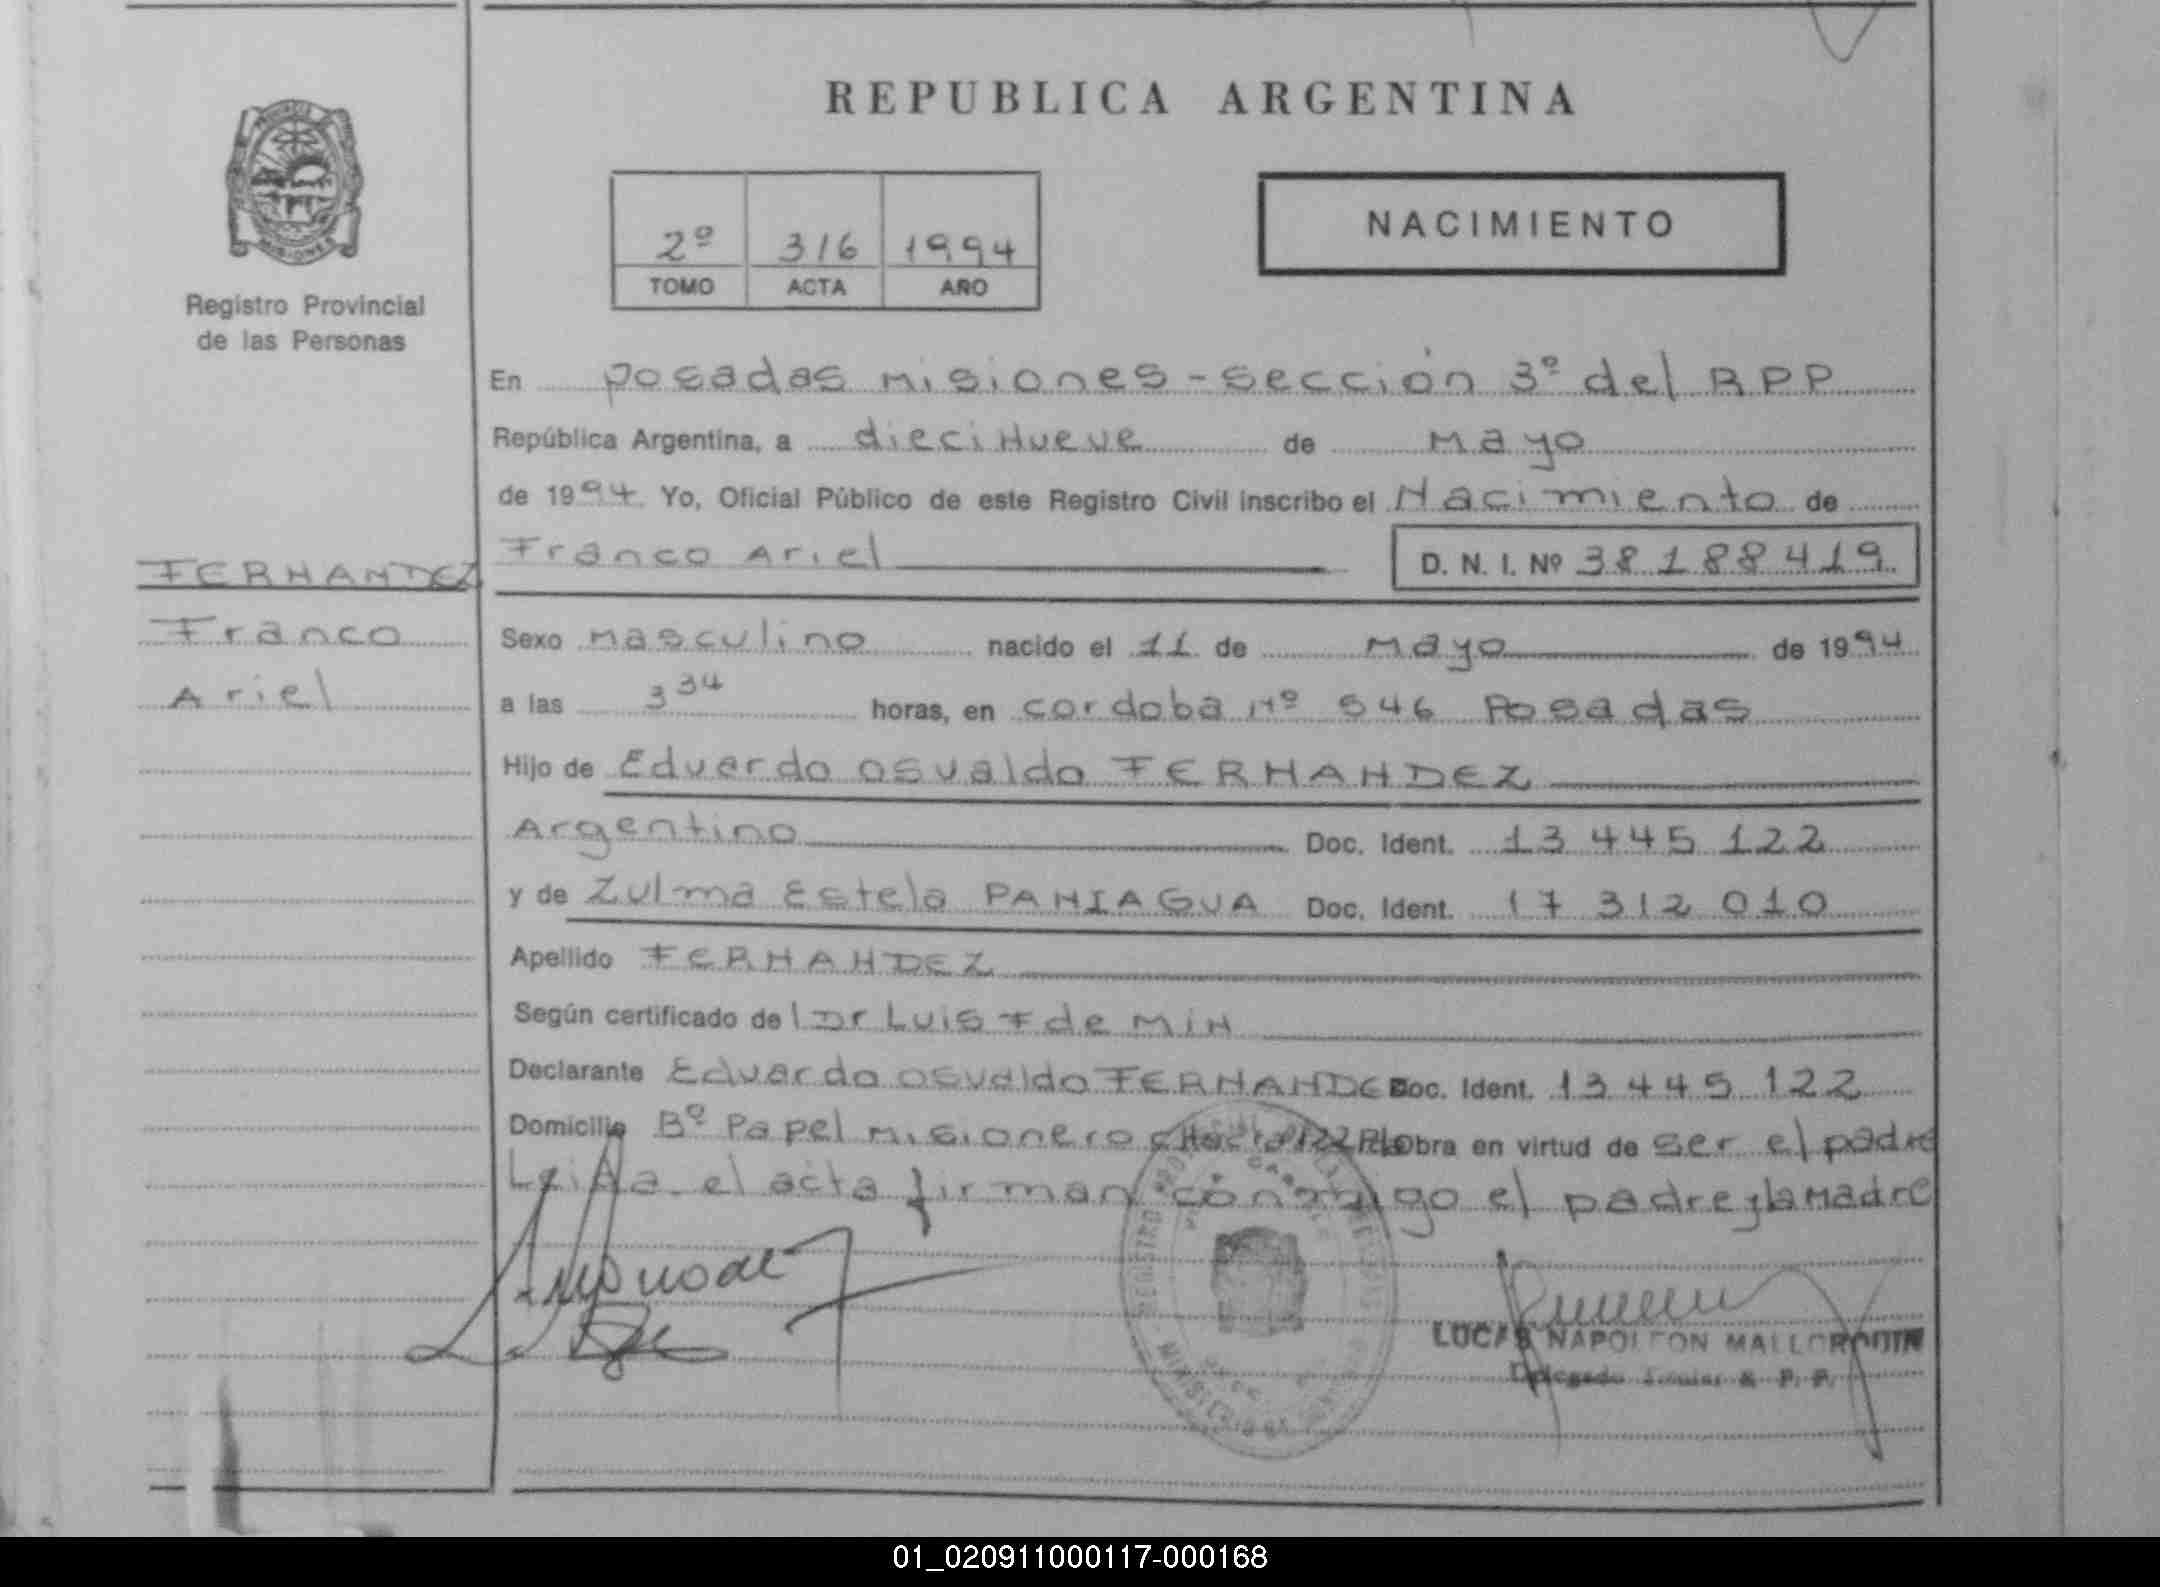 REPUBLICA ARGENTINA
2º 316 1994
TOMO ACTA AÑO
NACIMIENTO
Registro Provincial
de las Personas
En Posadas Misiones - sección 3º del RPP
República Argentina, a diecinueve de Mayo
de 1994. Yo, Oficial Público de este Registro Civil inscribo el Nacimiento de
Franco Ariel D. N. I. Nº 38188419
FERNANDEZ
Franco
Ariel
Sexo Masculino nacido el 11 de Mayo de 1994
a las 3 34 horas, en cordoba Nº 546 Posadas
Hijo de Eduardo Osvaldo FERNANDEZ
Argentino Doc. Ident. 13 445 122
y de Zulma Estela PANIAGUA Doc. Ident. 17 312 010
Apellido FERNANDEZ
Según certificado de l Dr Luis F de Min
Declarante Eduardo Osvaldo FERNANDEZ Doc. Ident. 13 445 122
Domicilio Bº Papel Misionero obra en virtud de ser el padre
Leida el acta firman conmigo el padre y la Madre
LUCAS NAPOLEON MALLORQUIN
Delegado
01_020911000117-000168